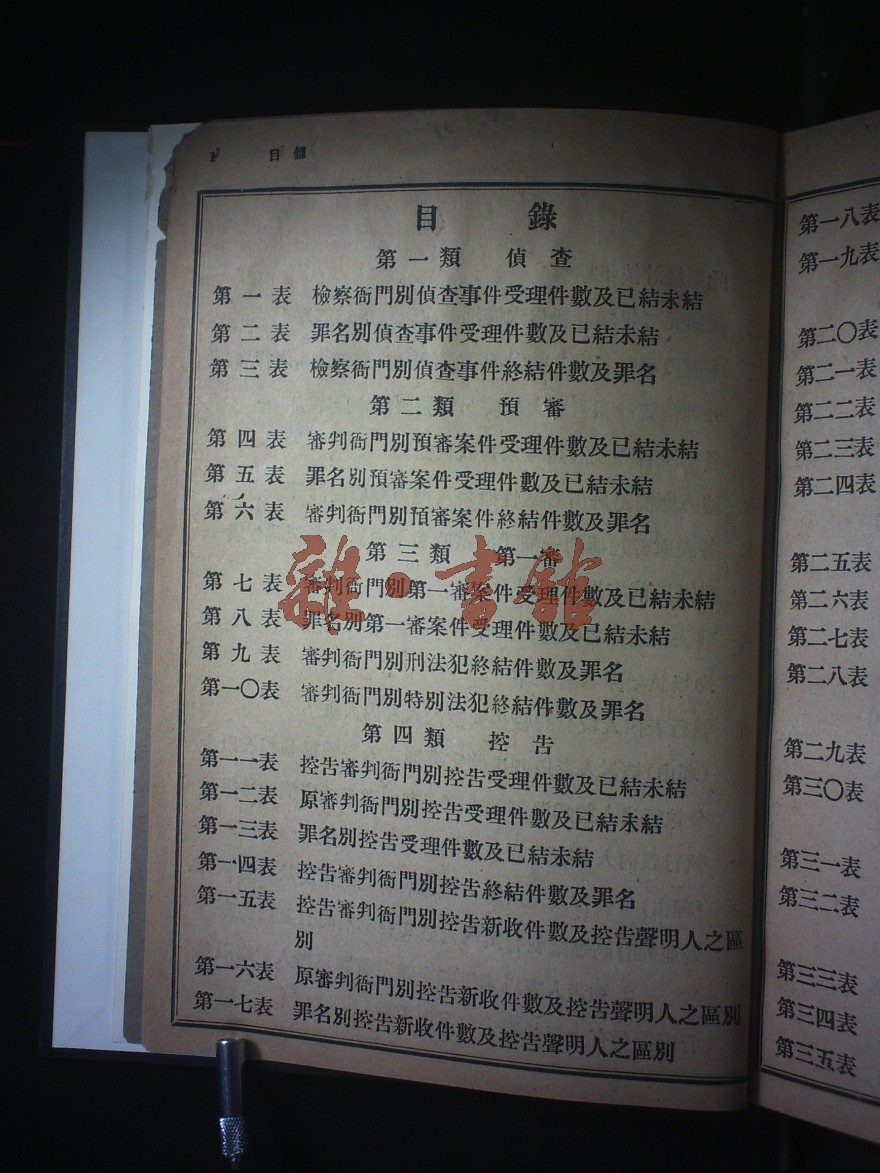 目錄
目錄
第一類 偵查
第一表 檢察衙門別偵查事件受理件數及已結未結
第二表 罪名別偵查事件受理件數及已結未結
第三表 檢察衙門別偵查事件終結件數及罪名
第二類 預審
第四表 審判衙門別預審案件受理件數及已結未結
第五表 罪名別預審案件受理件數及已結未結
第六表 審判衙門別預審案件終結件數及罪名
第三類 第一審
第七表 審判衙門別第一審案件受理件數及已結未結
第八表 罪名別第一審案件受理件數及已結未結
第九表 審判衙門別刑法犯終結件數及罪名
第一〇表 審判衙門別特別法犯終結件數及罪名
第四類 控告
第一一表 控告審判衙門別控告受理件數及已結未結
第一二表 原審判衙門別控告受理件數及已結未結
第一三表 罪名別控告受理件數及已結未結
第一四表 控告審判衙門別控告終結件數及罪名
第一五表 控告審判衙門別控告新收件數及控告聲明人之區
別
第一六表 原審判衙門別控告新收件數及控告聲明人之區別
第一七表 罪名別控告新收件數及控告聲明人之區別
第一八表
第一九表
第二〇表
第二一表
第二二表
第二三表
第二四表
第二五表
第二六表
第二七表
第二八表
第二九表
第三〇表
第三一表
第三二表
第三三表
第三四表
第三五表
雜·書館